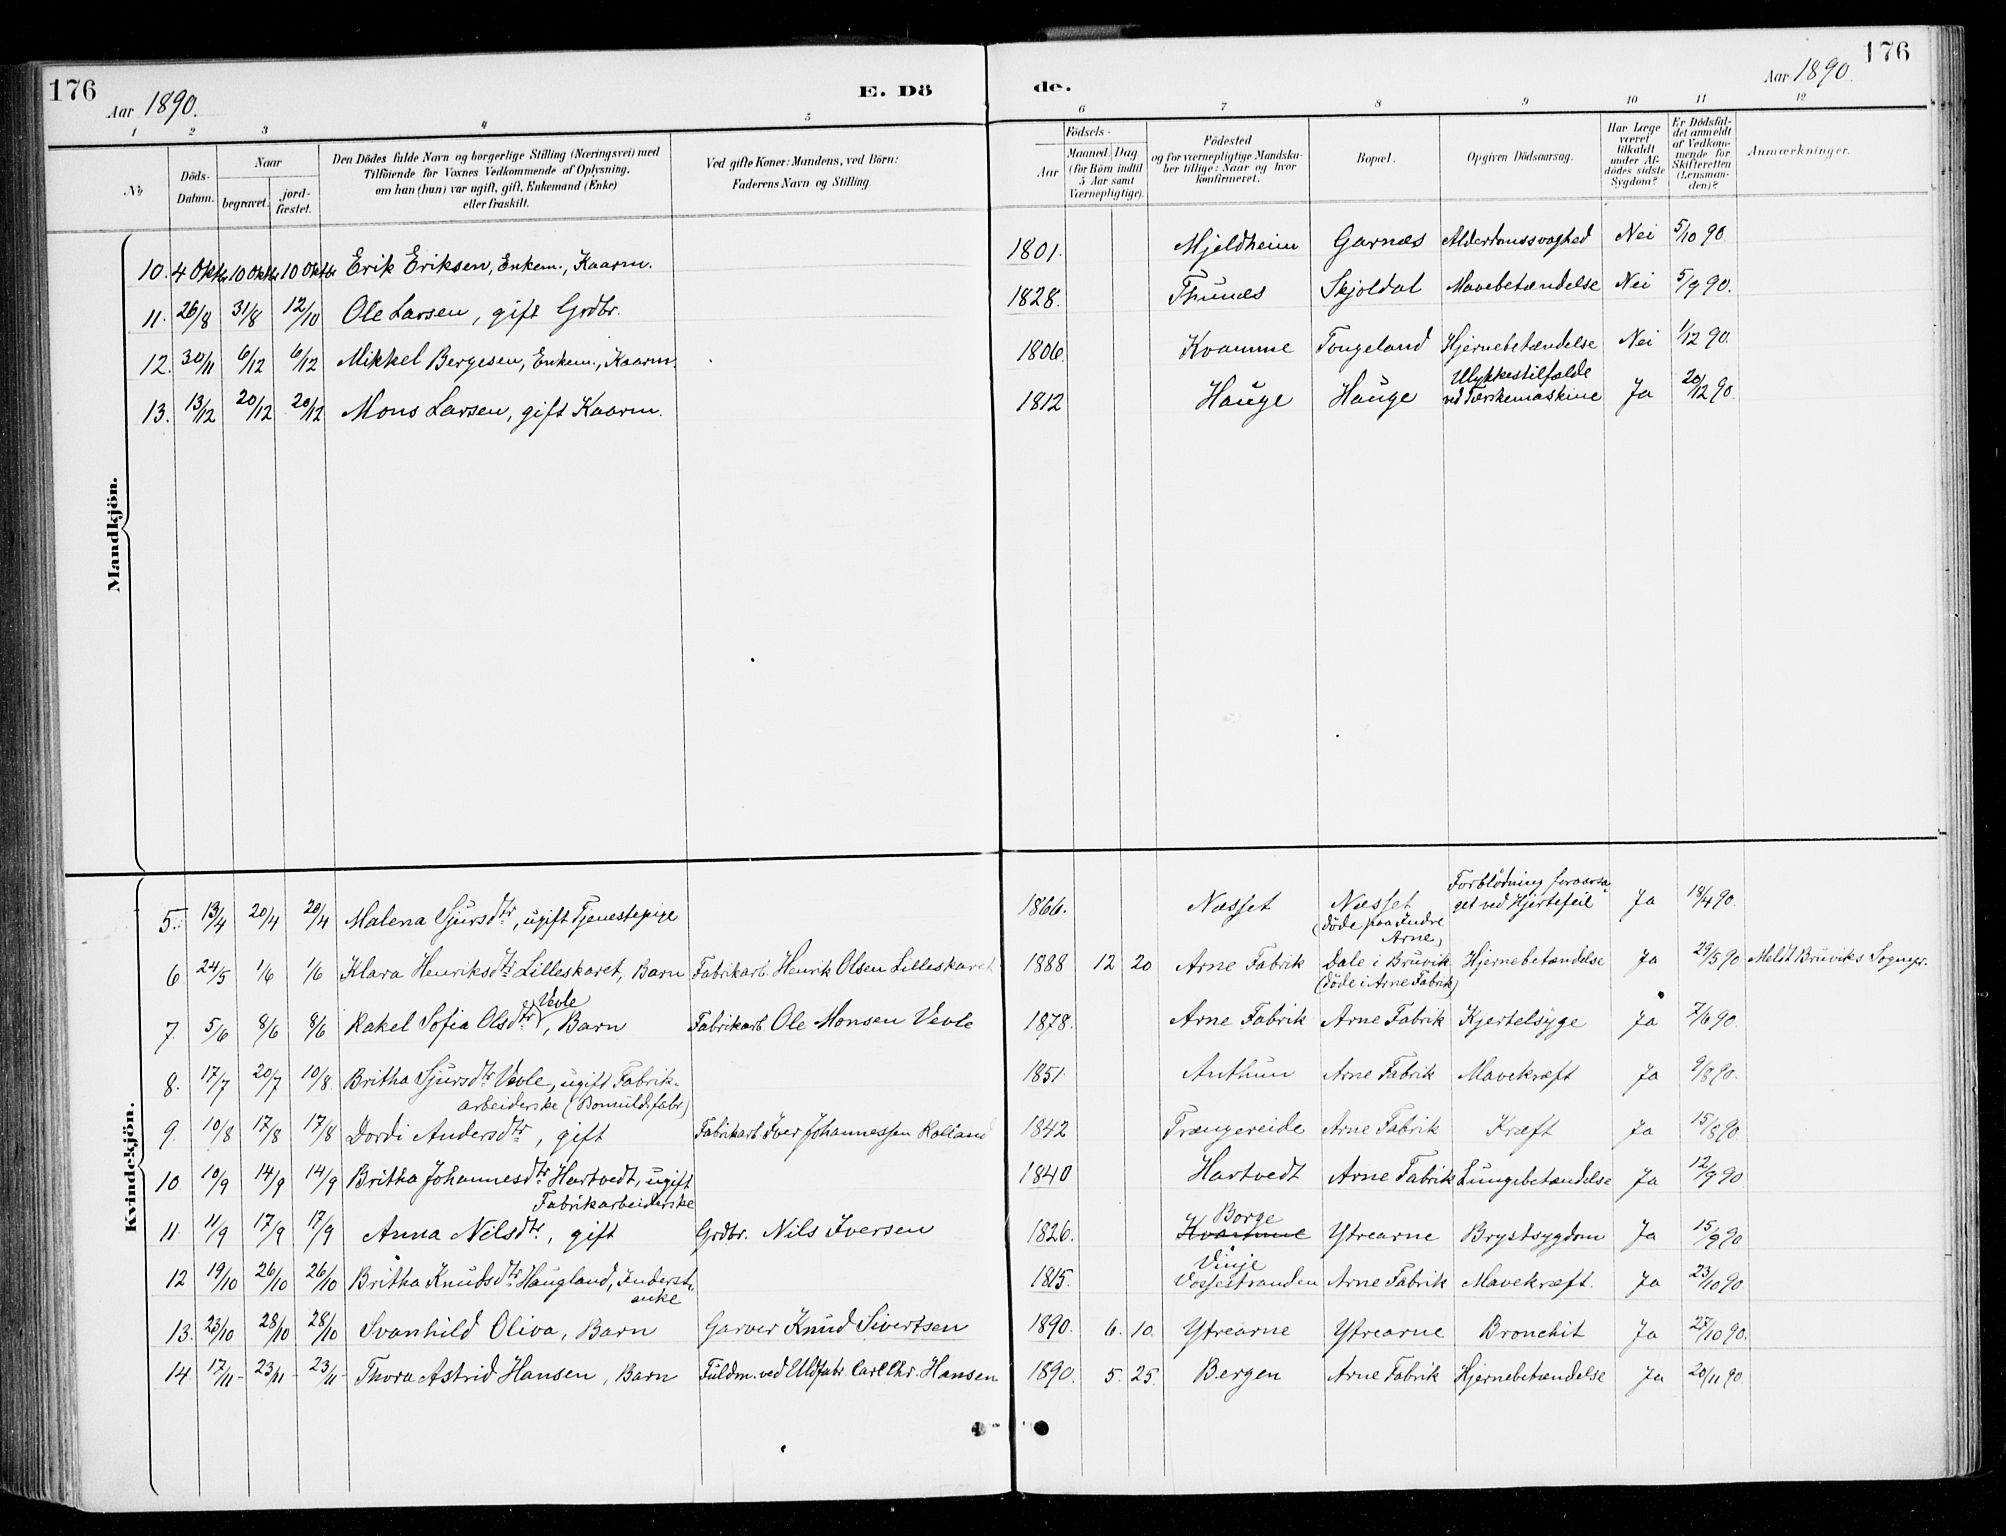 176
Aar 1890.
E. Dö
de.
Aar 1890.
176
1 2 3 4 5 6 7 8 9 10 11 12
No
Döds-Datum.
Naar
begravet.
jord-fæstet.
Den Dödes fulde Navn og borgerlige Stilling (Næringsvei) med
Tilföiende for Voxnes Vedkommende af Oplysning,
om han (hun) var ugift, gift, Enkemand (Enke)
eller fraskilt.
Ved gifte Koner: Mandens, ved Börn:
Faderens Navn og Stilling.
Födsels-
Aar
Maaned. Dag.
(for Börn indtil
5 Aar samt
Værnepligtige).
Födested
og for værnepligtige Mandska-
ber tillige: Naar og hvor
konfirmeret.
Bopæl.
Opgiven Dödsaarsag.
Har Læge
været
tilkaldt
under Af-
dödes sidste
Sygdom?
Er Dödsfal-
det anmeldt
af Vedkom-
mende for
Skifteretten
(Lensman-
den)?
Anmærkninger.
Mandkjön.
10. 4 Oktbr 10 Oktbr 10 Oktbr Erik Eriksen, Enkem., Kaarm. 1801. Mjeldheim Garnæs Alderdomssvaghed Nei 5/10 90
11. 26/8 31/8 12/10 Ole Larsen, gift Grdbr. 1828. Thunæs Skjoldal Mavebetændelse Nei 5/9 90.
12. 30/11 6/12 6/12 Mikkel Bergesen, Enkem., Kaarm. 1806. Kvamme Tongeland Hjernebetændelse Nei 1/12 90.
13. 13/12 20/12 20/12 Mons Larsen, gift Kaarm. 1812 Hauge Hauge Ulykkestilfælde
ved Tærskemaskine Ja 20/12 90.
Kvindekjön.
5. 13/4 20/4 20/4 Malena Sjursdtr, ugift Tjenestepige 1866. Næsset Næsset
(döde paa Indre
Arne) Forblödning foraarsa
get ved Hjertefeil Ja 18/4 90.
6 24/5 1/6 1/6 Klara Henriksdtr Lilleskaret, Barn Fabrikarb. Henrik Olsen Lilleskaret 1888 12 20 Arne Fabrik Dale i Bruvik
(döde i Arne Fabrik) Hjernebetændelse Ja 29/5 90 Meldt Bruviks Sognepr.
7. 5/6 8/6 8/6 Rakel Sofia Olsdtr Vevle, Barn Fabrikarb Ole Monsen Vevle 1878. Arne Fabrik Arne Fabrik Kjertelsyge Ja 7/6 90.
8. 17/7 20/7 10/8 Britha Sjursdtr Vevle, ugift Fabrik-
arbeiderske (Bomuldsfabr) 1851. Anthun Arne Fabrik Mavekræft Ja 9/8 90.
9. 10/8 17/8 17/8 Dordi Andersdtr, gift Fabrikarb Iver Johannessen Rolland 1842 Trængereide Arne Fabrik Kræft Ja 15/8 90
10 10/9 14/9 14/9 Britha Johannesdtr Hartvedt, ugift
Fabrikarbeiderske 1840 Hartvedt Arne Fabrik Lungebetændelse Ja 12/9 90
11 11/9 17/9 17/9 Anna Nilsdtr, gift Grdbr. Nils Iversen 1826. Borge
Kvamme Ytrearne Brystsygdom Ja 15/9 90
12 19/10 26/10 26/10 Britha Knudsdtr Haugland, Inderst-
enke 1815. Vinje
Vossestranden Arne Fabrik Mavekræft. Ja 23/10 90
13. 23/10 28/10 28/10 Svanhild Oliva, Barn Garver Knud Sivertsen 1890. 6. 10. Ytrearne Ytrearne Bronchit Ja 27/10 90.
14. 17/11 23/11 23/11 Thora Astrid Hansen, Barn Fuldm. ved Uldfabr. Carl Chr. Hansen 1890. 5. 25. Bergen Arne Fabrik Hjernebetændelse Ja 20/11 90.